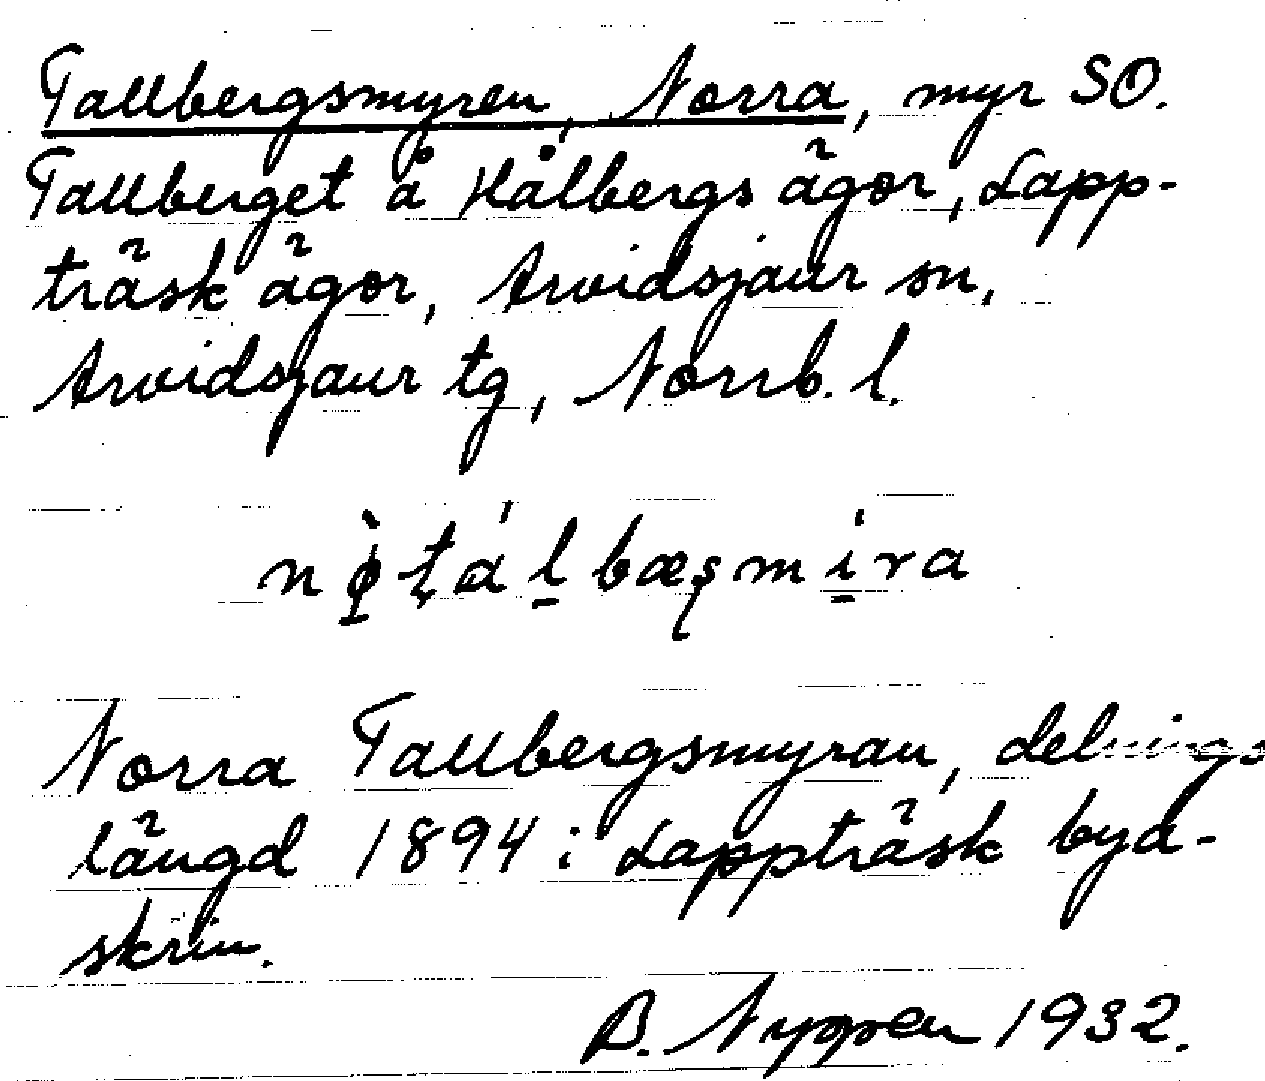 Tallbergsmyren, Norra, myr SO.
Tallberget å Hålbergs ägor, Lapp-
träsk ägor, Arvidsjaur sn,
Arvidsjaur tg, Norrb. l.
Norra Tallbergsmyran, delnings
längd 1894 i Lappträsk bya-
skrin.
B. Nyggren 1932.